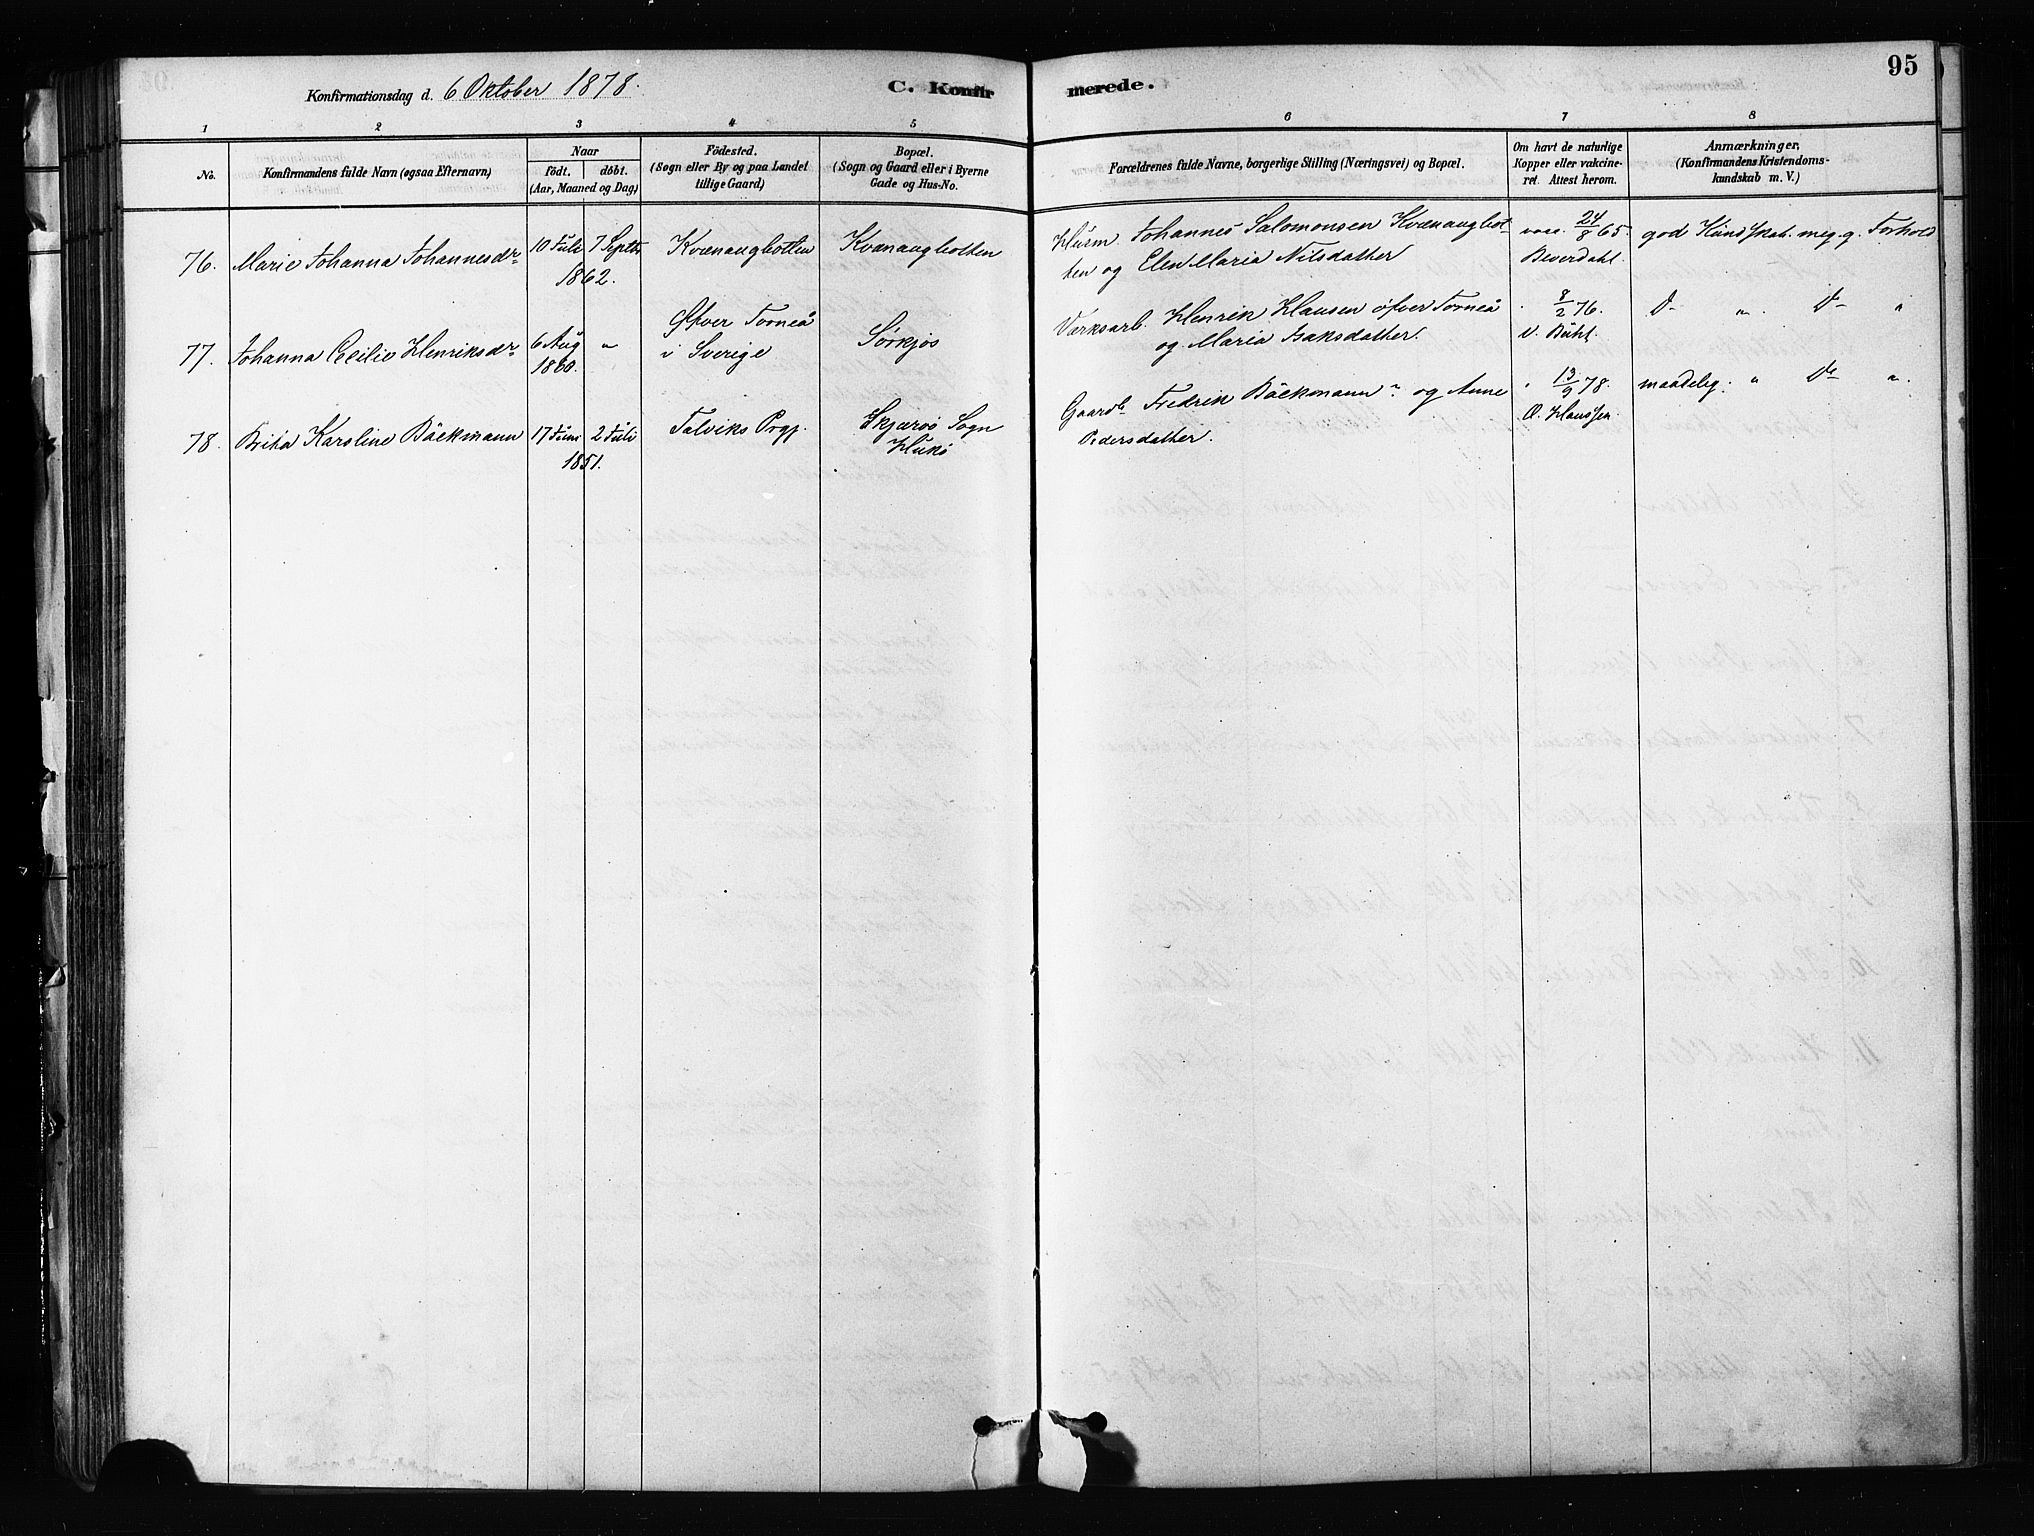 Konfirmationsdag d. 6 Oktober 1878.
C. Konfir
merede.
95
1
2
3
4
5
6
7
8
No.
Konfirmandens fulde Navn (ogsaa Efternavn)
Naar
födt.
döbt.
(Aar, Maaned og Dag)
Födested.
(Sogn eller By og paa Landet
tillige Gaard)
Bopæl.
(Sogn og Gaard eller i Byerne
Gade og Hus-No.
Forældrenes fulde Navne, borgerlige Stilling (Næringsvei) og Bopæl.
Om havt de naturlige
Kopper eller vakcine-
ret. Attest herom.
Anmærkninger,
(Konfirmandens Kristendoms-
kundskab m. V.)
76. Marie Johanna Johannesdr 10 Juli 7 Septb
1862.
Kvænangbotten
Kvænangbotten
Husm Johannes Salomonsen Kvænangbot-
ten og Elen Maria Nilsdatter
vacc. 24/8 65.
Beverdahl.
god Kundskab. meg. g. Forhold
77. Johanna Cecilie Henriksdr 6 Aug "
1860.
Øfver Torneå
i Sverige
Sørkjos
Værksarb. Henrik Hansen öfver Torneå
og Maria Isaksdatter.
" 8/2 76.
D. Buhl.
Do " Do "
78. Brita Karoline Bäckmann 17 Juni 2 Juli
1851.
Talviks Prgj.
Skjærvö Sogn
Hukö
Gaardb Fredrik Bäckmann " og Anne
Pedersdatter.
" 13/9 78.
O. Hansen.
maadelig. " Do "